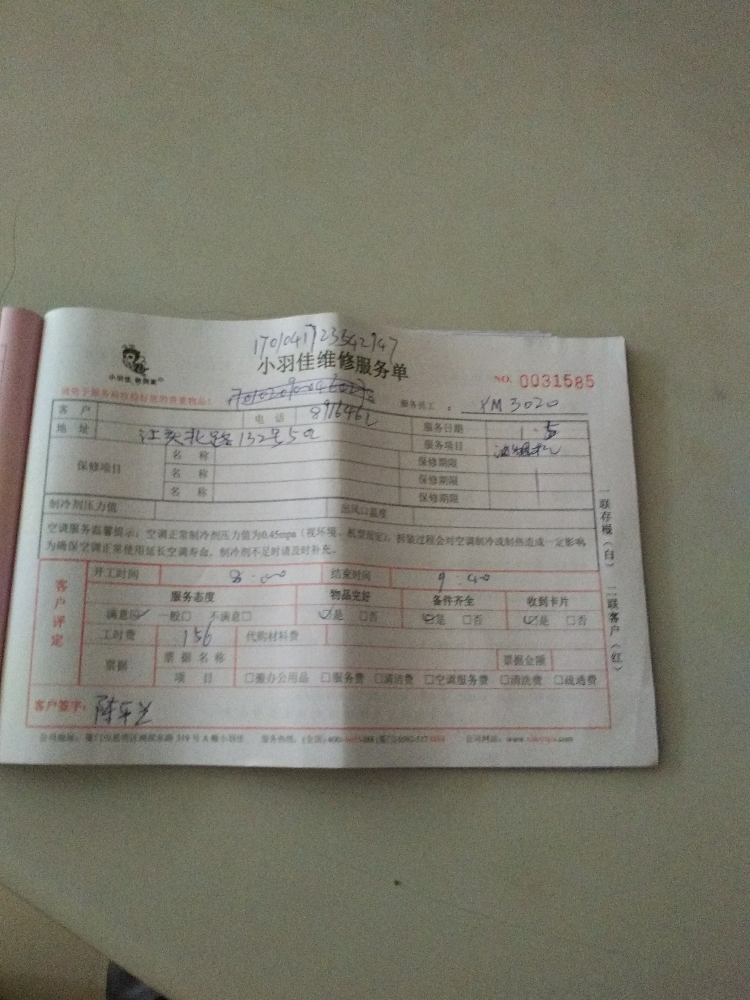 小羽佳维修服务单
NO. 0031585
请给予服务前收检好您的贵重物品！
服务员工： XM3020
客户 电话 8916462 服务日期 1.5
地址 江头北路132号502 服务项目 油烟机
保修项目 名称 保修期限
名称 保修期限
名称 保修期限
制冷剂压力值 出风口温度
空调服务温馨提示：空调正常制冷剂压力值为0.45mpa（视环境、机型而定），拆装过程会对空调制冷或制热造成一定影响
为确保空调正常使用延长空调寿命，制冷剂不足时请及时补充。
客户评定
开工时间 8:00 结束时间 9:40
服务态度 物品完好 备件齐全 收到卡片
满意☑ 一般□ 不满意□ ☑是 □否 ☑是 □否 ☑是 □否
工时费 156 代购材料费
票据 票据名称 票据金额
项目 □搬办公用品 □服务费 □清洁费 □空调服务费 □清洗费 □疏通费
客户签字：
一联存根（白） 二联客户（红）